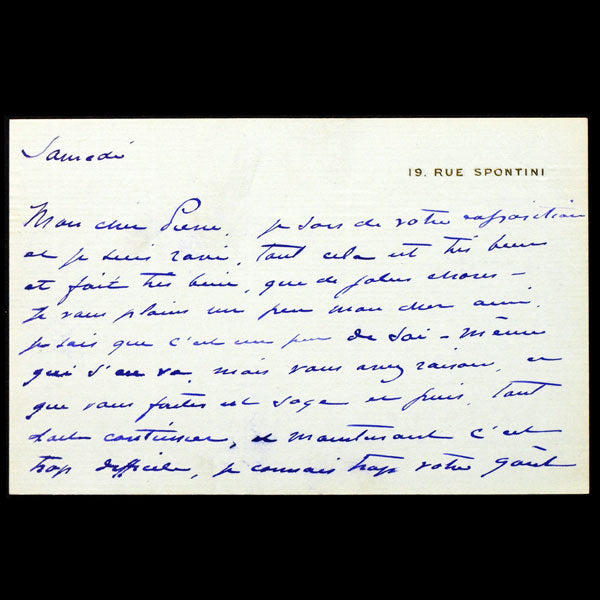 Samedi
19. RUE SPONTINI
Mon cher Pierre, je sors de votre exposition
et je suis ravi, tout cela est très beau
et fait très bien, que de jolies choses –
Je vous plains un peu mon cher ami,
je sais que c'est un peu de soi-même
qui s'en va, mais vous avez raison, ce
que vous faites est sage et puis, tout
doit continuer, et maintenant c'est
trop difficile, je connais trop votre goût